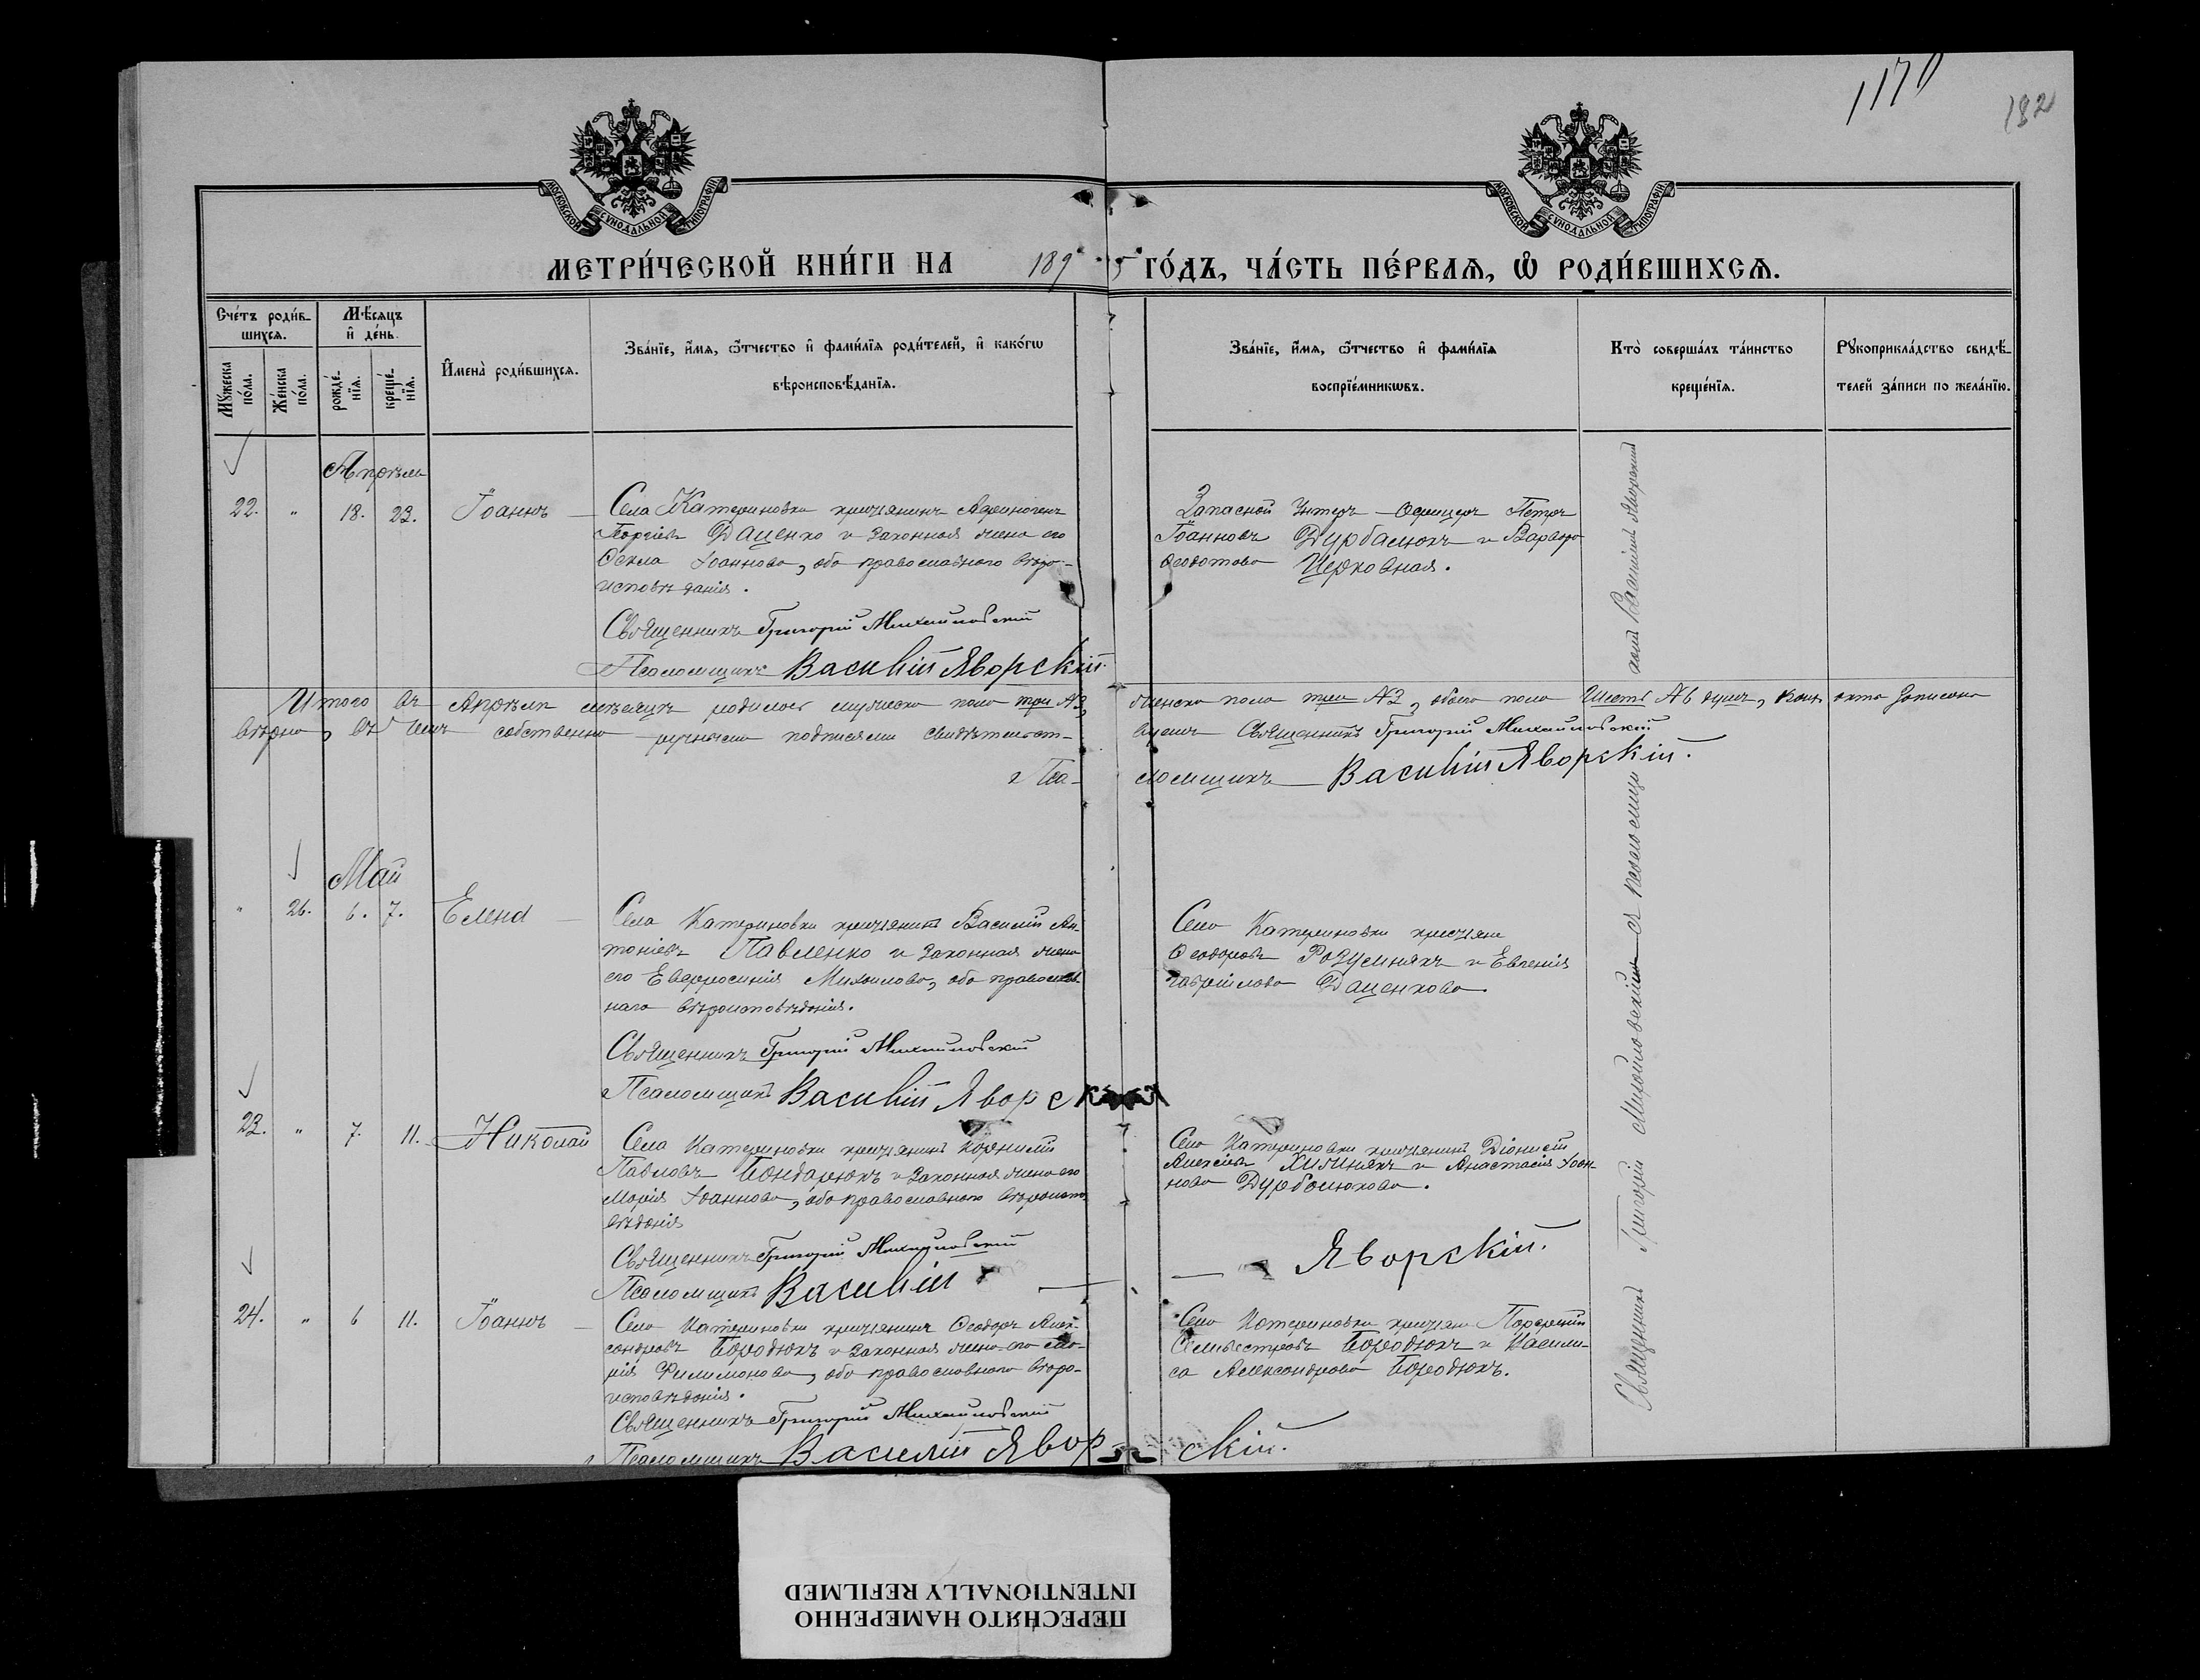 1170
182
МОСКОВСКОЙ СѴНОДАЛЬНОЙ ТИПОГРАФІИ
МОСКОВСКОЙ СѴНОДАЛЬНОЙ ТИПОГРАФІИ
МЕТРИ́ЧЕСКОЙ КНИ́ГИ НА 1895 ГО́ДЪ, ЧА́СТЬ ПЕ́РВАѦ, Ѽ РОДИ́ВШИХСѦ.
Сче́тъ роди́в-
шихсѧ.
Мꙋ́жеска по́ла.
Же́нска по́ла.
Мѣ́сѧцъ
и҆ де́нь.
рожде́-
нїѧ.
креще́-
нїѧ.
И҆мена̀ роди́вшихсѧ.
Зва́нїе, и҆́мѧ, ѻ҆́тчество и҆ фами́лїѧ роди́телей, и҆ како́гѡ
вѣроисповѣ́данїѧ.
Зва́нїе, и҆́мѧ, ѻ҆́тчество и҆ фами́лїѧ
воспрїе́мникѡвъ.
Кто̀ соверша́лъ та́инство
креще́нїѧ.
Рꙋкоприкла́дство свидѣ́-
телей за́писи по жела́нїю.
Апрѣль
22. " 18. 23. Іоаннъ
Села Катериновки крестьянинъ Аѳиногенъ
Даценко и законная жена его
Ѳекла Іоаннова, оба православнаго вѣро-
исповѣданія.
Священникъ Григорій Михайловскій
Псаломщикъ Василій Яворскій
Запасной Унтеръ-Офицеръ Петръ
Іоанновъ Дурбалюкъ и Варвара
Ѳеодотова Церковная.
Итого въ Апрѣлѣ мѣсяцѣ родилось мужеска пола три №3, женска пола три №3, обоего пола шесть №6 душъ, записано
вѣрно, въ чемъ собственно ручными подписями свидѣтельст-
вуемъ Священникъ Григорій Михайловскій
Пса-
ломщикъ Василій Яворскій.
Май
" 26. 6. 7. Елена
Села Катериновки крестьянинъ Василій Ан-
тоніевъ Павленко и законная жена
его Евфросинія Михаилова, оба православ-
наго вѣроисповѣданія.
Священникъ Григорій Михайловскій
Псаломщикъ Василій Яворскій
Села Катериновки крестьяне
Ѳеодоровъ Розумнякъ и Евгенія
Гавріилова Даценкова.
23. " 7. 11. Николай
Села Катериновки крестьянинъ Корнилій
Павловъ Бондарюкъ и законная жена его
Марія Іоаннова, оба православнаго вѣроиспо-
вѣданія
Священникъ Григорій Михайловскій
Псаломщикъ Василій
Села Катериновки крестьянинъ Діонисій
Алексіевъ Хижнякъ и Анастасія Іоан-
нова Дурбалюкова.
Яворскій.
24. " 6 11. Іоаннъ
Села Катериновки крестьянинъ Ѳеодоръ Алек-
сандровъ Бородюкъ и законная жена его Ма-
рія Филимонова, оба православнаго вѣро-
исповѣданія.
Священникъ Григорій Михайловскій
Псаломщикъ Василій Явор-
скій.
Села Катериновки крестьяне Порфирій
Сильвестровъ Бородюкъ и Васили-
са Александрова Бородюкъ.
Священникъ Григорій Михайловскій съ псаломщикомъ Василіемъ Яворскимъ
ПЕРЕСНЯТО НАМЕРЕННО
INTENTIONALLY REFILMED